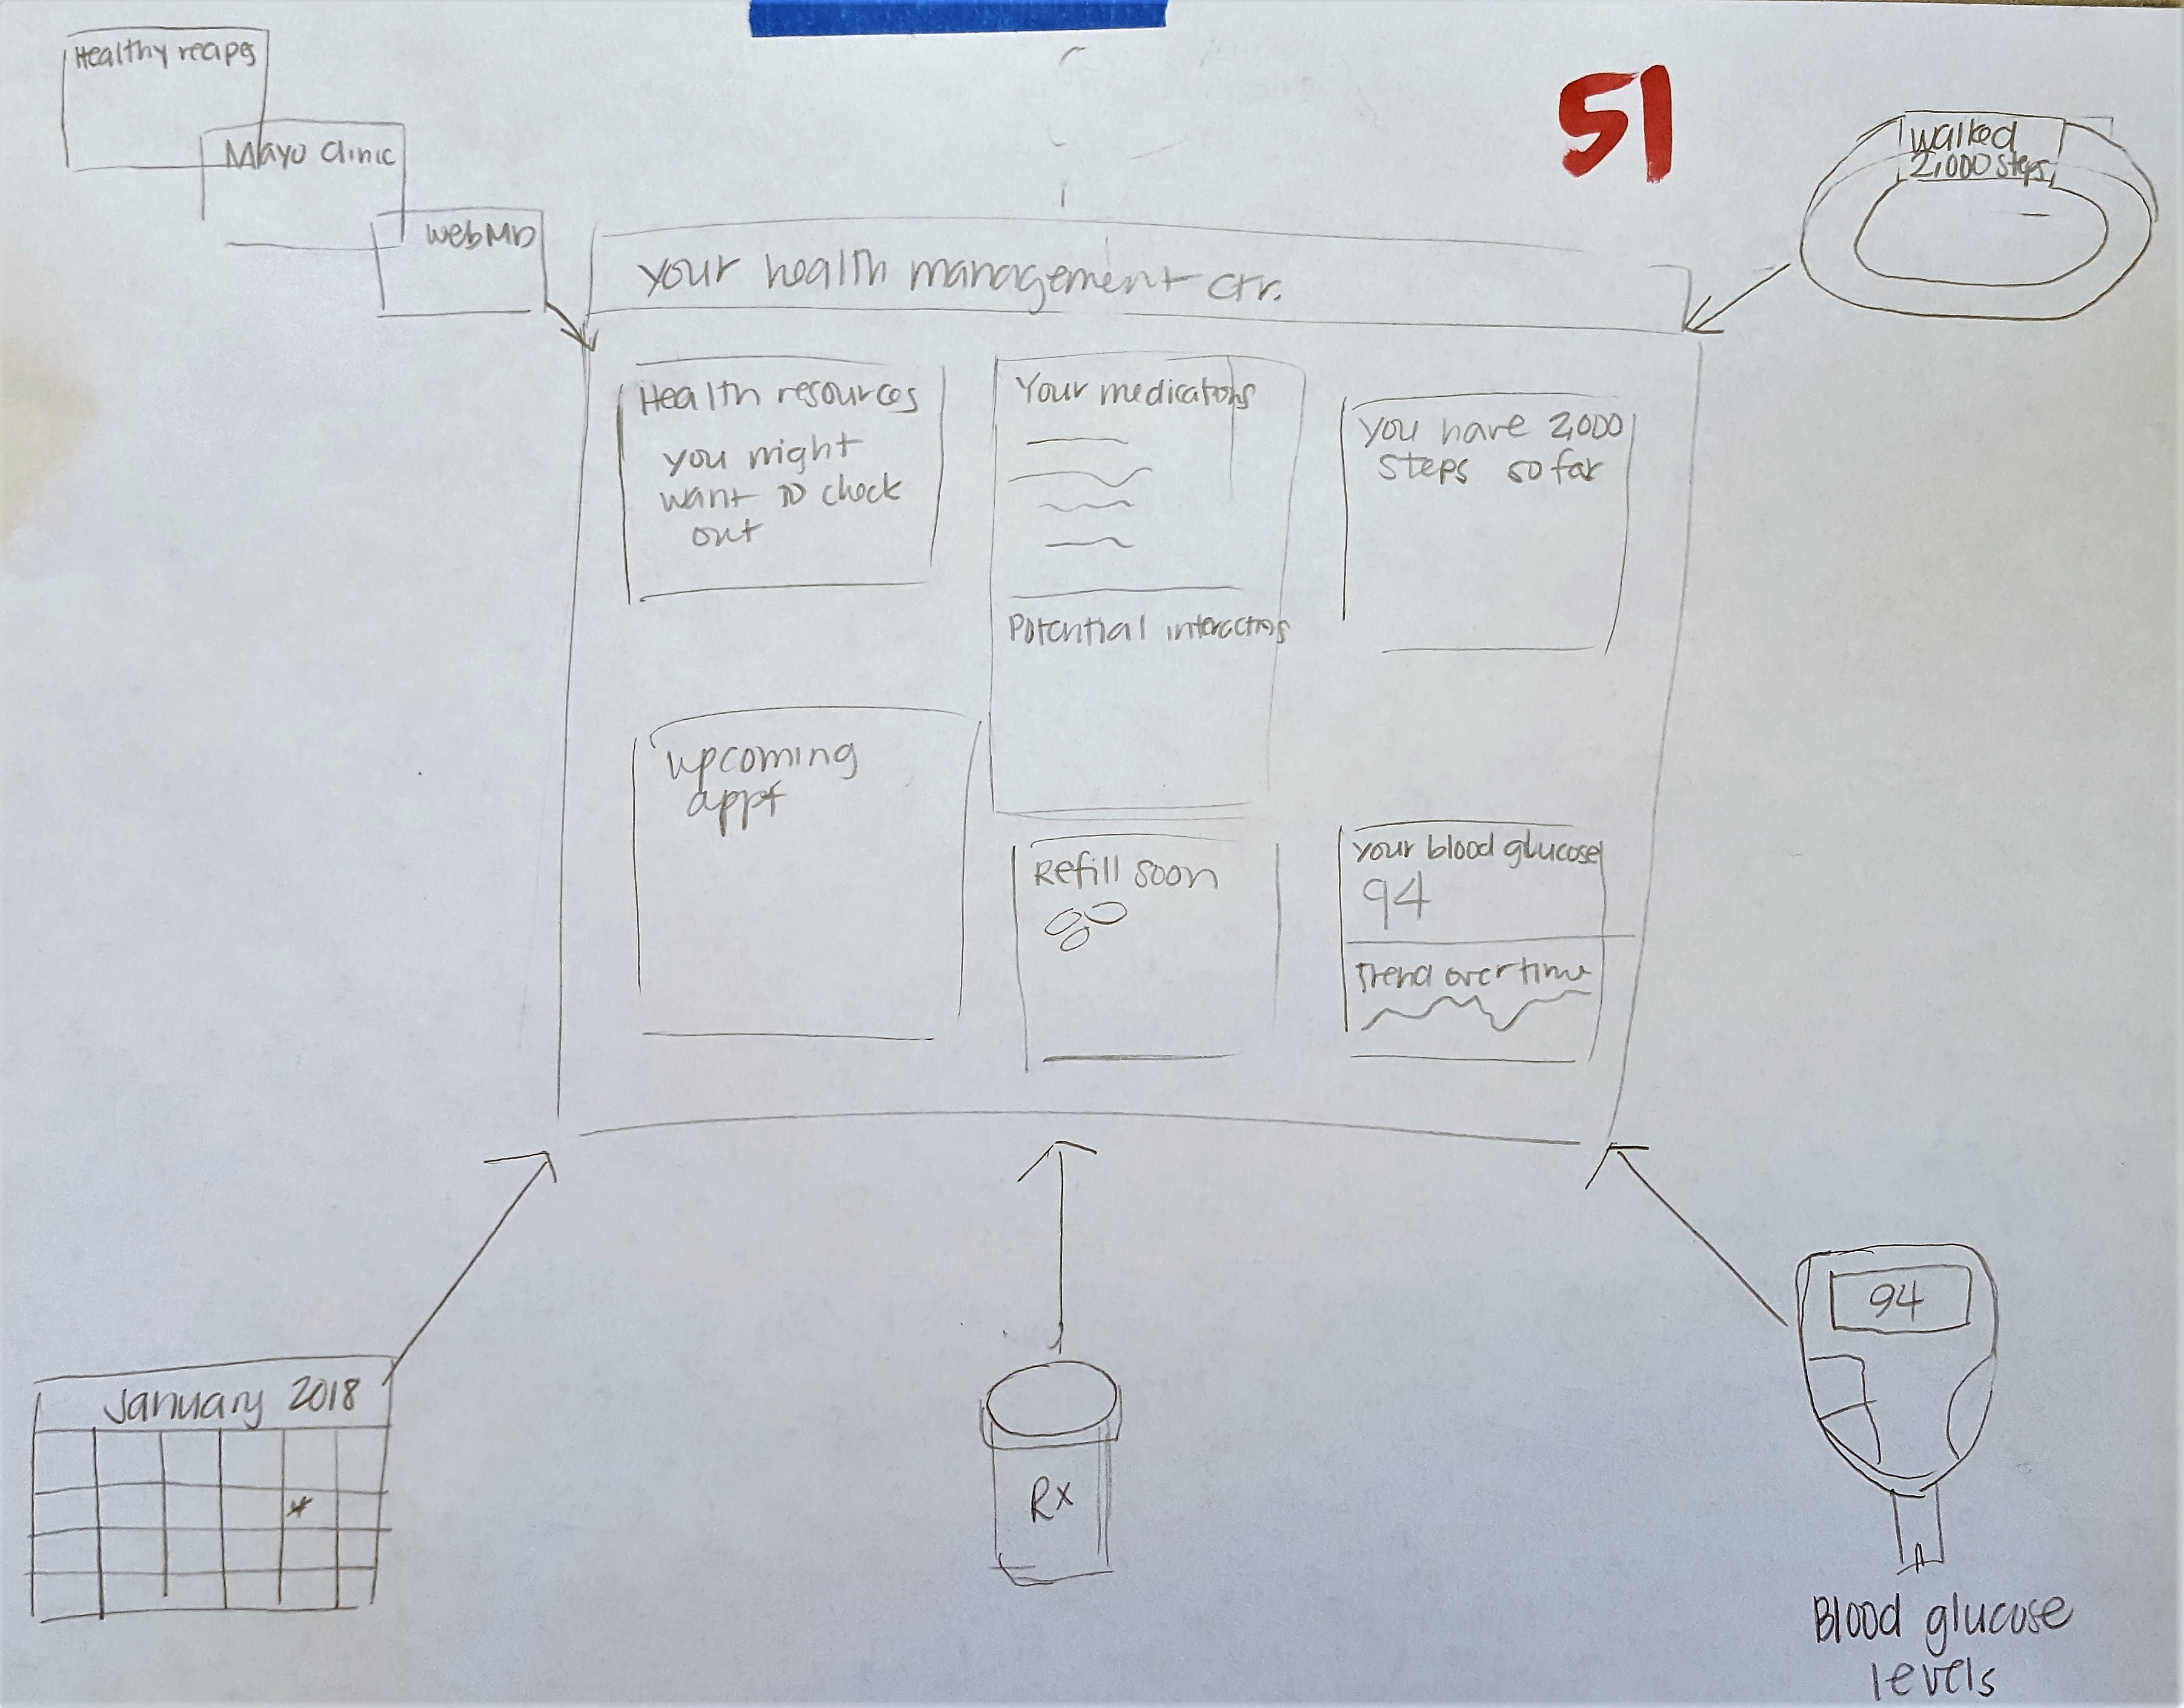 Healthy recipes
Mayo Clinic
WebMD
51
Walked
2,000 steps
your health management ctr.
Health resources
you might
want to check
out
Your medications
Potential interactions
you have 2,000
steps so far
upcoming
appt
Refill soon
your blood glucose
94
Trend over time
January 2018
*
Rx
94
Blood glucose
levels